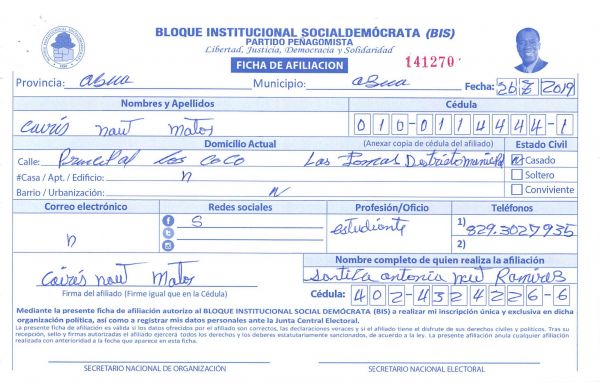 BLOQUE INSTITUCIONAL SOCIALDEMÓCRATA (BIS)
PARTIDO PEÑAGOMISTA
Libertad, Justicia, Democracia y Solidaridad
FICHA DE AFILIACION 141270
Provincia: Azua Municipio: Azua Fecha: 26 8 2019
Nombres y Apellidos Cédula
naut Matos 010-0114444-1
Domicilio Actual (Anexar copia de cédula del afiliado) Estado Civil
Calle: Principal Los Coco Las Lomas Destrito municipal Casado
#Casa / Apt. / Edificio: n Soltero
Barrio / Urbanización: N Conviviente
Correo electrónico Redes sociales Profesión/Oficio Teléfonos
n S estudiante 1) 829.3027935
2)
Nombre completo de quien realiza la afiliación
naut Matos antonia Ramires
Firma del afiliado (Firme igual que en la Cédula) Cédula: 402-4324226-6
Mediante la presente ficha de afiliación autorizo al BLOQUE INSTITUCIONAL SOCIAL DEMÓCRATA (BIS) a realizar mi inscripción única y exclusiva en dicha
organización política, así como a registrar mis datos personales ante la Junta Central Electoral.
La presente ficha de afiliación es válida si los datos ofrecidos por el afiliado son correctos, las declaraciones veraces y si el afiliado tiene el disfrute de sus derechos civiles y políticos. Tras su
recepción, sello y firmas autorizadas el afiliado ejercerá todos los derechos y los deberes estatutariamente sancionados, de acuerdo a la ley. La presente afiliación anula cualquier afiliación
realizada con anterioridad a la fecha que aparece en esta ficha.
SECRETARIO NACIONAL DE ORGANIZACIÓN SECRETARIO NACIONAL ELECTORAL